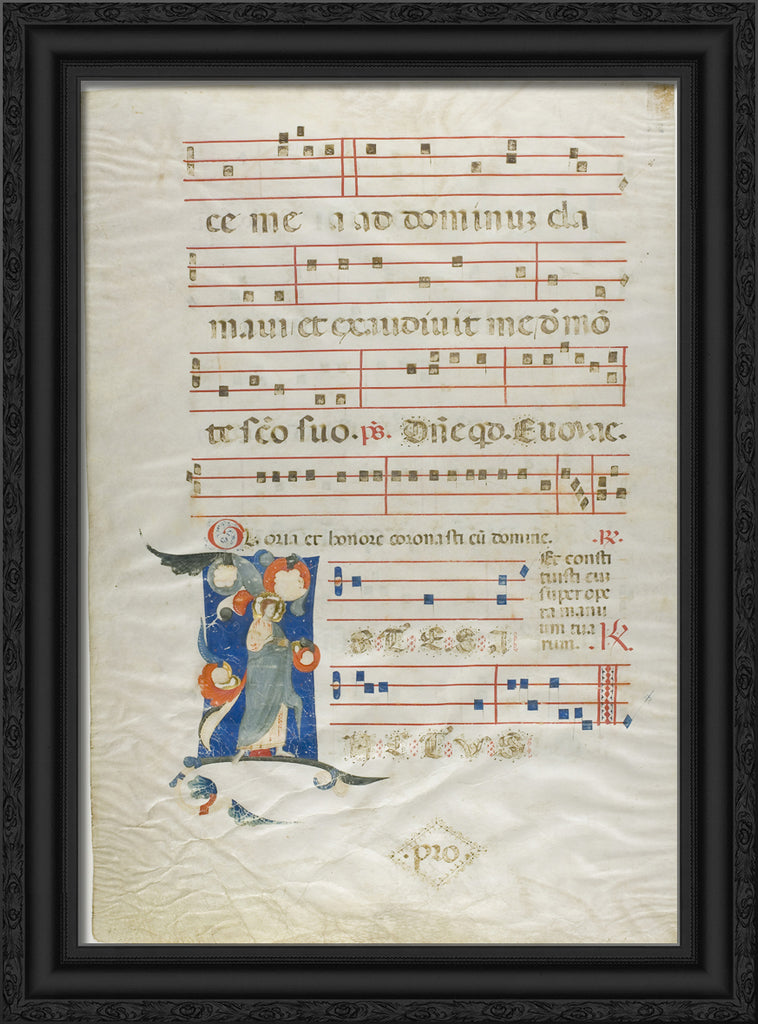 ce me a ad dominuz cla
maui et exaudiuit me, d̄ mō
te sc̄o suo. p̄s. Dn̄e qd. Euovae.
Gloria et honore coronasti eū domine. .R.
Et consti
tuisti eui
super ope
ra manu
um tua
rum. . R.
STESI
LTVS
.pro.